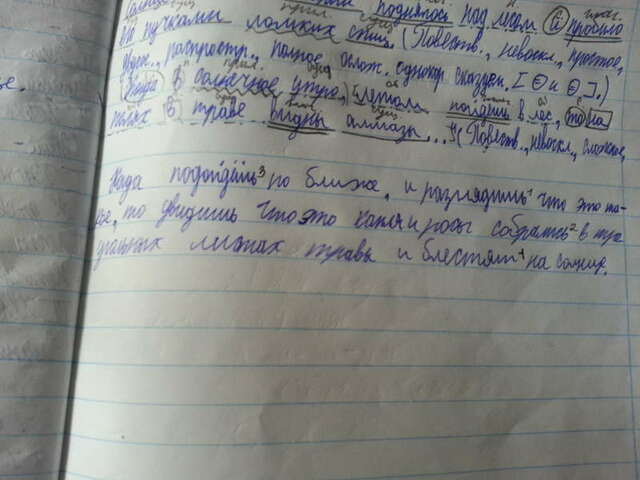 поднялось над лесом и
по пучками ломких спиц. (Повеств., невоскл., простое,
распростр., полное, ослож. однород. сказуем. [ и ].)
Когда в солнечное утро, летом пойдёшь в лес, то на
полях в траве видны алмазы... (Повеств., невоскл., сложное,
Када подойдёшь³ по ближе, и разглядишь¹ что это та-
кое, то увидишь что это капли росы собрать² в тре
угальных листах травы и блестят¹ на солнце.